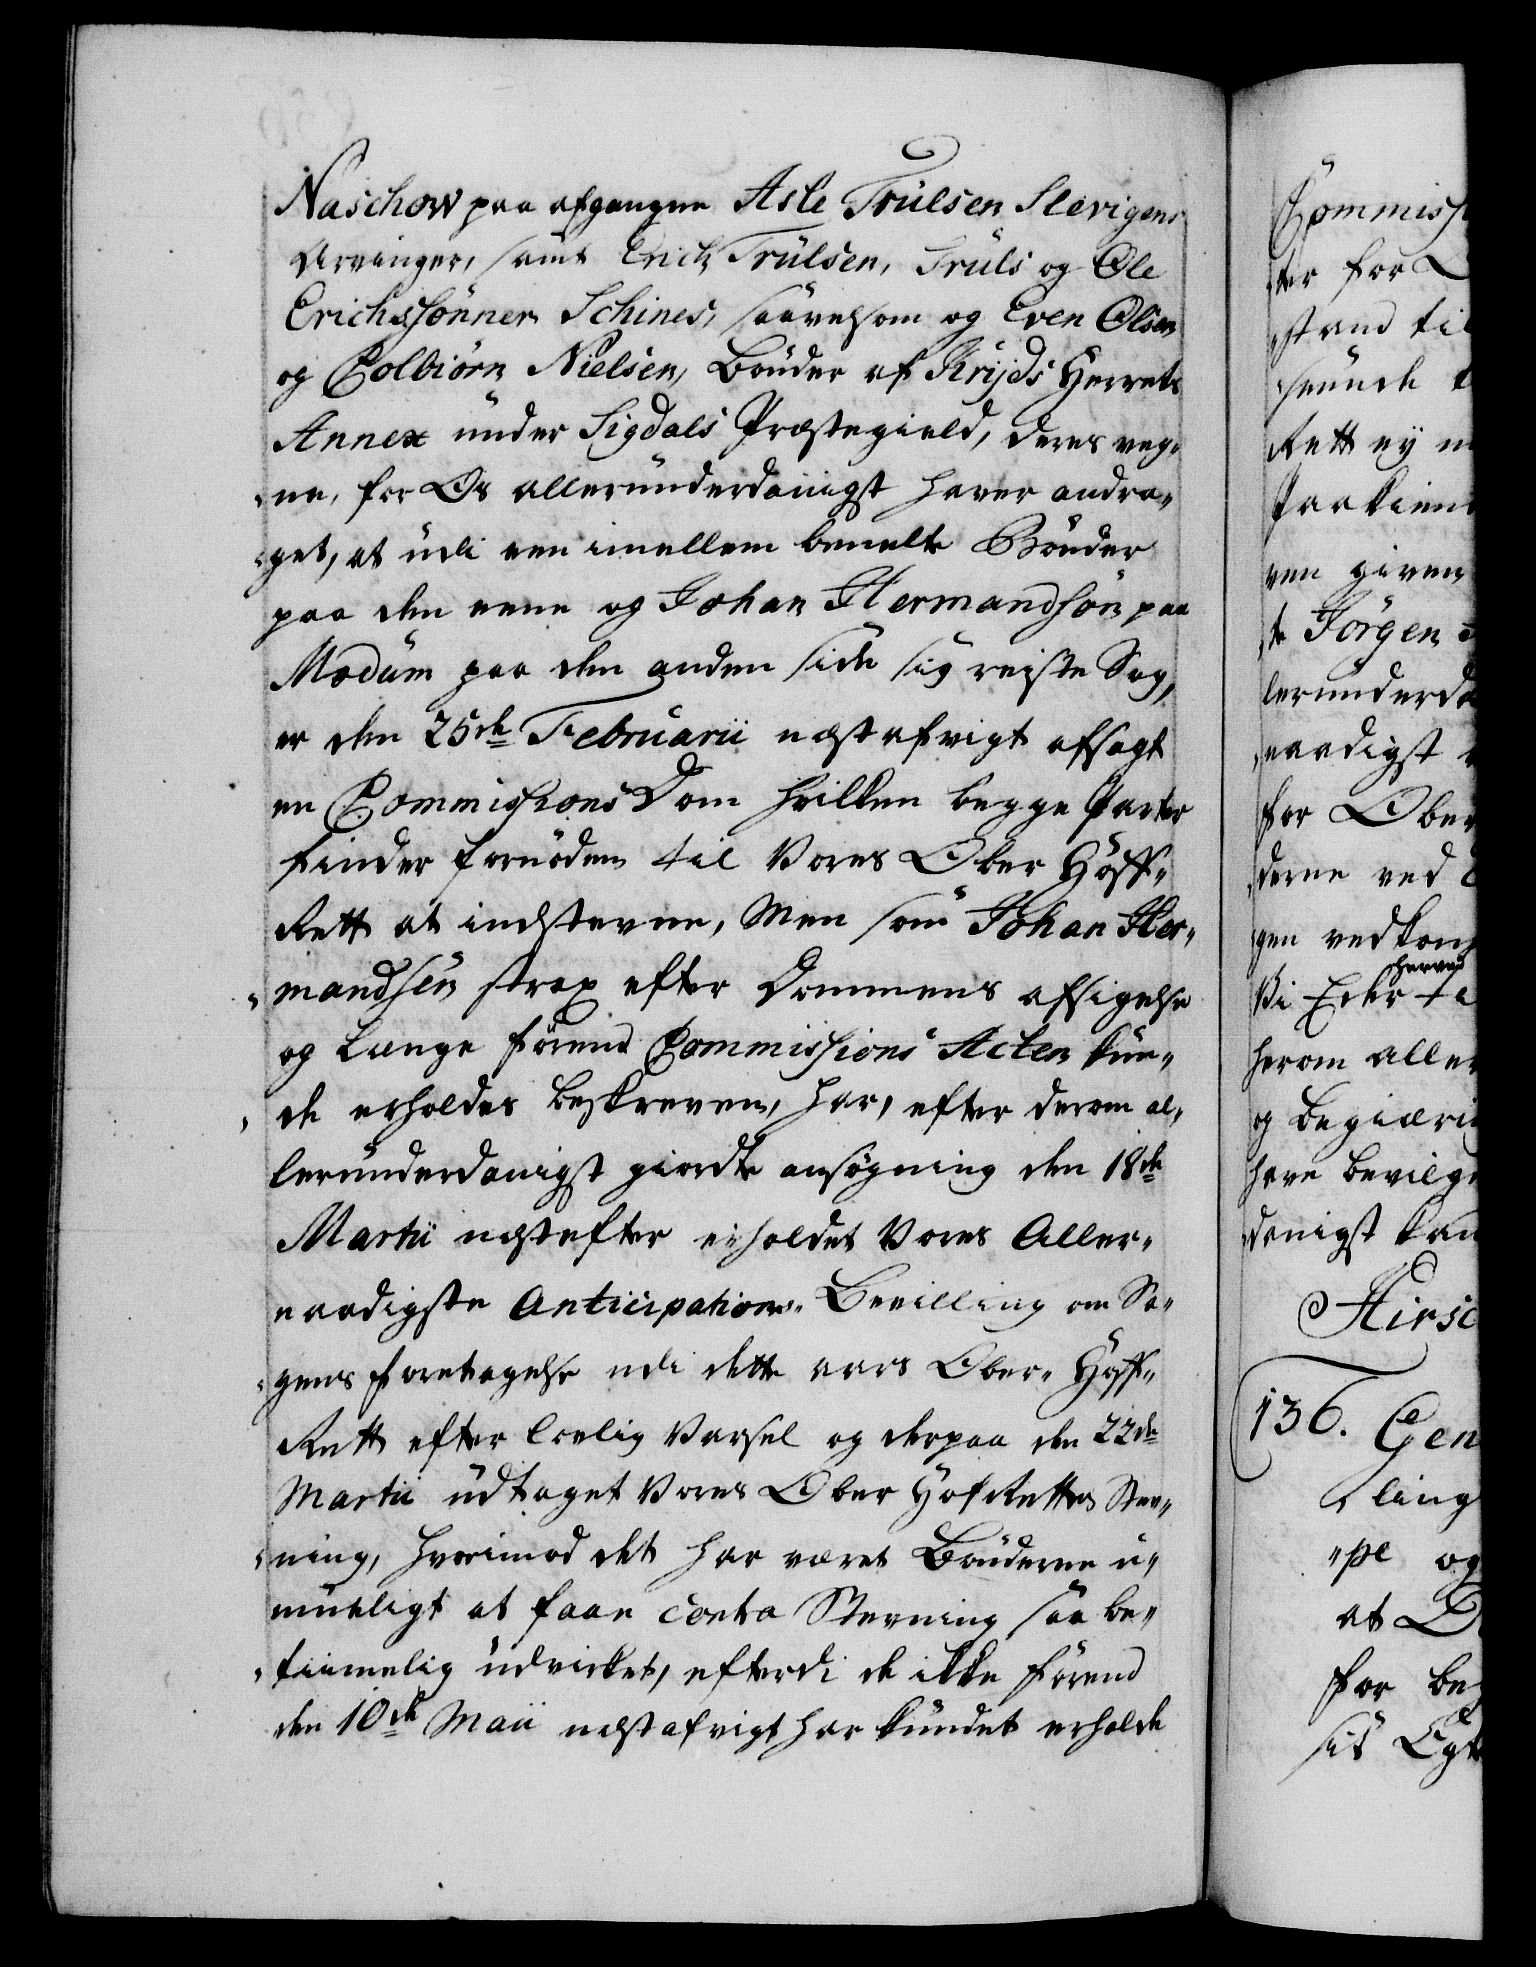 Naschow paa afgangne Asle Trulsen Slevigens
Arvinger, samt Erich Trulsen, Truls og Ole
Erichssønner Schines, saavelsom og Even Olsen
og Colbiørn Nielsen, Bønder af Krijds Herrets
Annex under Sigdals Præstegield, deres veg„
„ne, for Os allerunderdanigst haver andra„
„get, at udi een imellem bemelte Bønder
paa den eene og Johan Hermandsøn paa
Modum paa den anden side sig reiste Sag,
er den 25de Februarii næstafvigt afsagt
en Commissions Dom hvilken begge Parter
finder fornøden til Vores Ober Hoff„
Rett at indstevne, Men som Johan Her„
„mandsen strax efter Dommens afsigelse
og længe førend Commissions Acten kun„
„de erholdes beskreven, har, efter derom al„
lerunderdanigst giorde ansøgning den 18de
Martii næstefter erholdet Vores Aller„
naadigste Anticipations„ Bevilling om Sa„
„gens foretagelse udi dette aars Ober„ Hoff„
Rett efter lovlig Varsel og derpaa den 22de
Martii udtaget Vores Ober Hof Rettes Stev„
„ning, hvorimod det har været Bønderne u„
mueligt at faae Contra Stevning saa be„
„tiimelig udvirket, efterdi de ikke førend
den 10de Maii næstafvigt har kundet erholde
Commiss
ter for
stand til
Rett ey
ven given
te Jørgen
lerunderda
naadigst
for Ober
derne ved
gen vedkom
herved
Vi
herom aller
og begiæri
have bevilg
danigst kan
Hirsc
136. Gen
ling
„pe og
at
for be
sit Egt